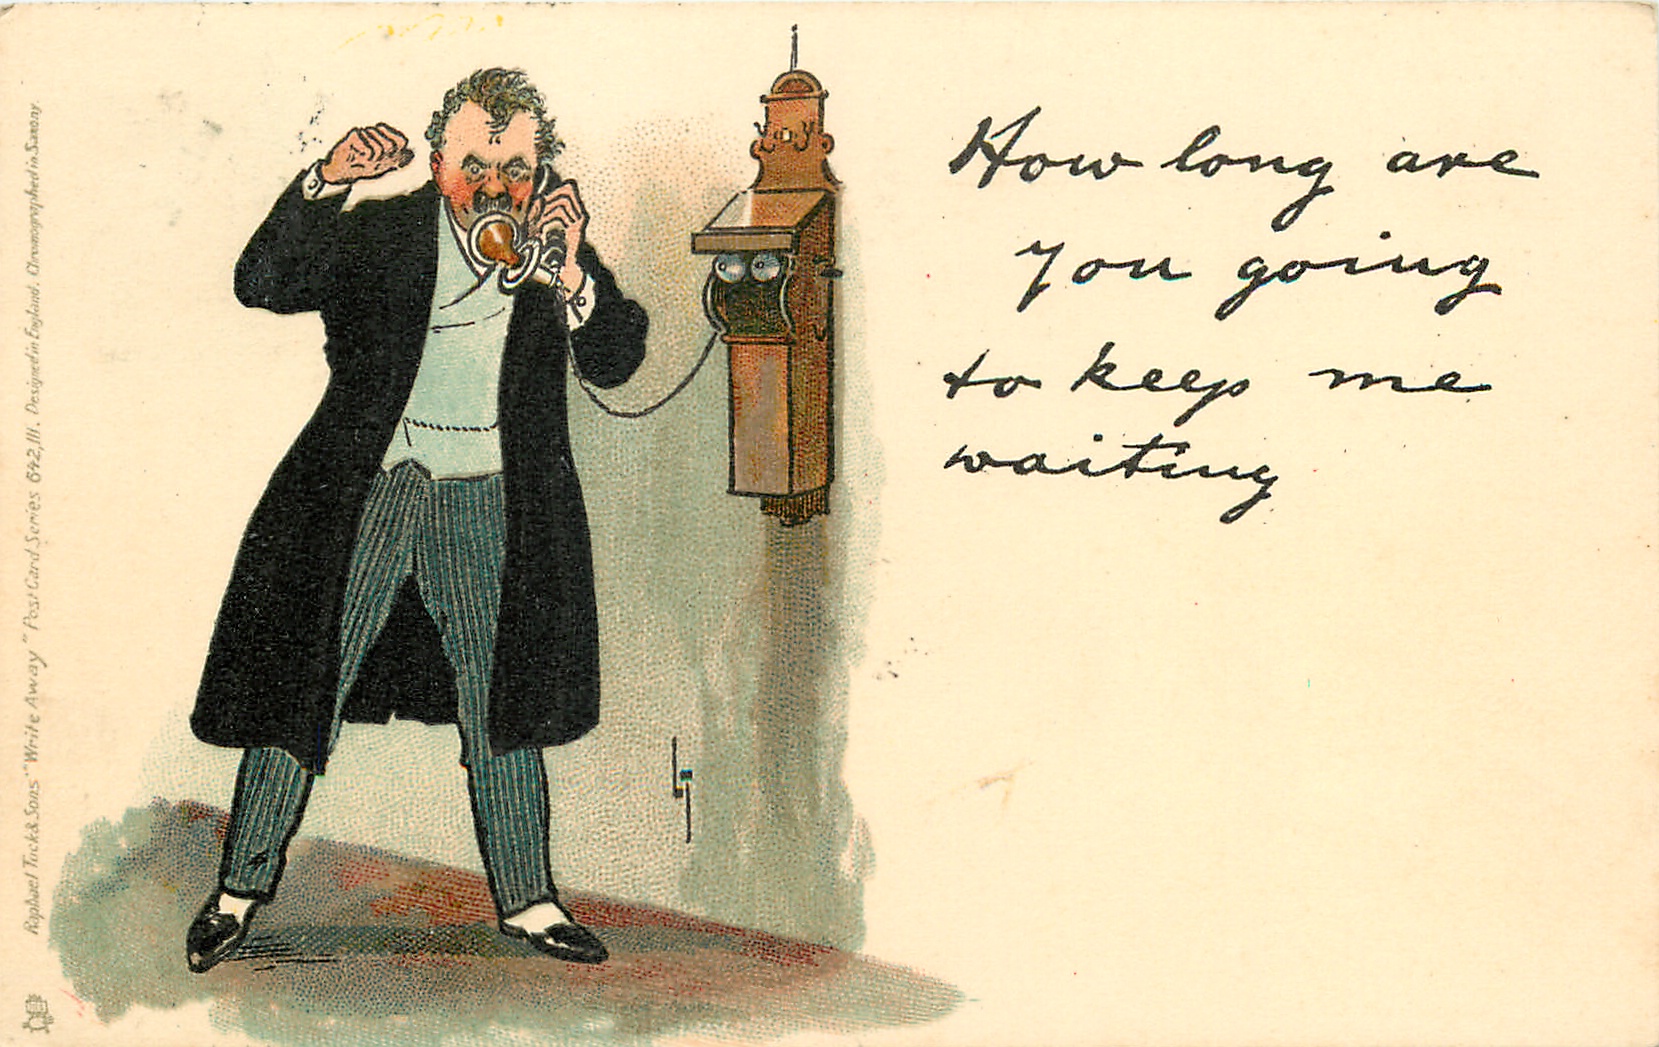 How long are
you going
to keep me
waiting
Raphael Tuck & Sons' "Write Away" Post Card Series 642, III. Designed in England. Chromographed in Saxony.